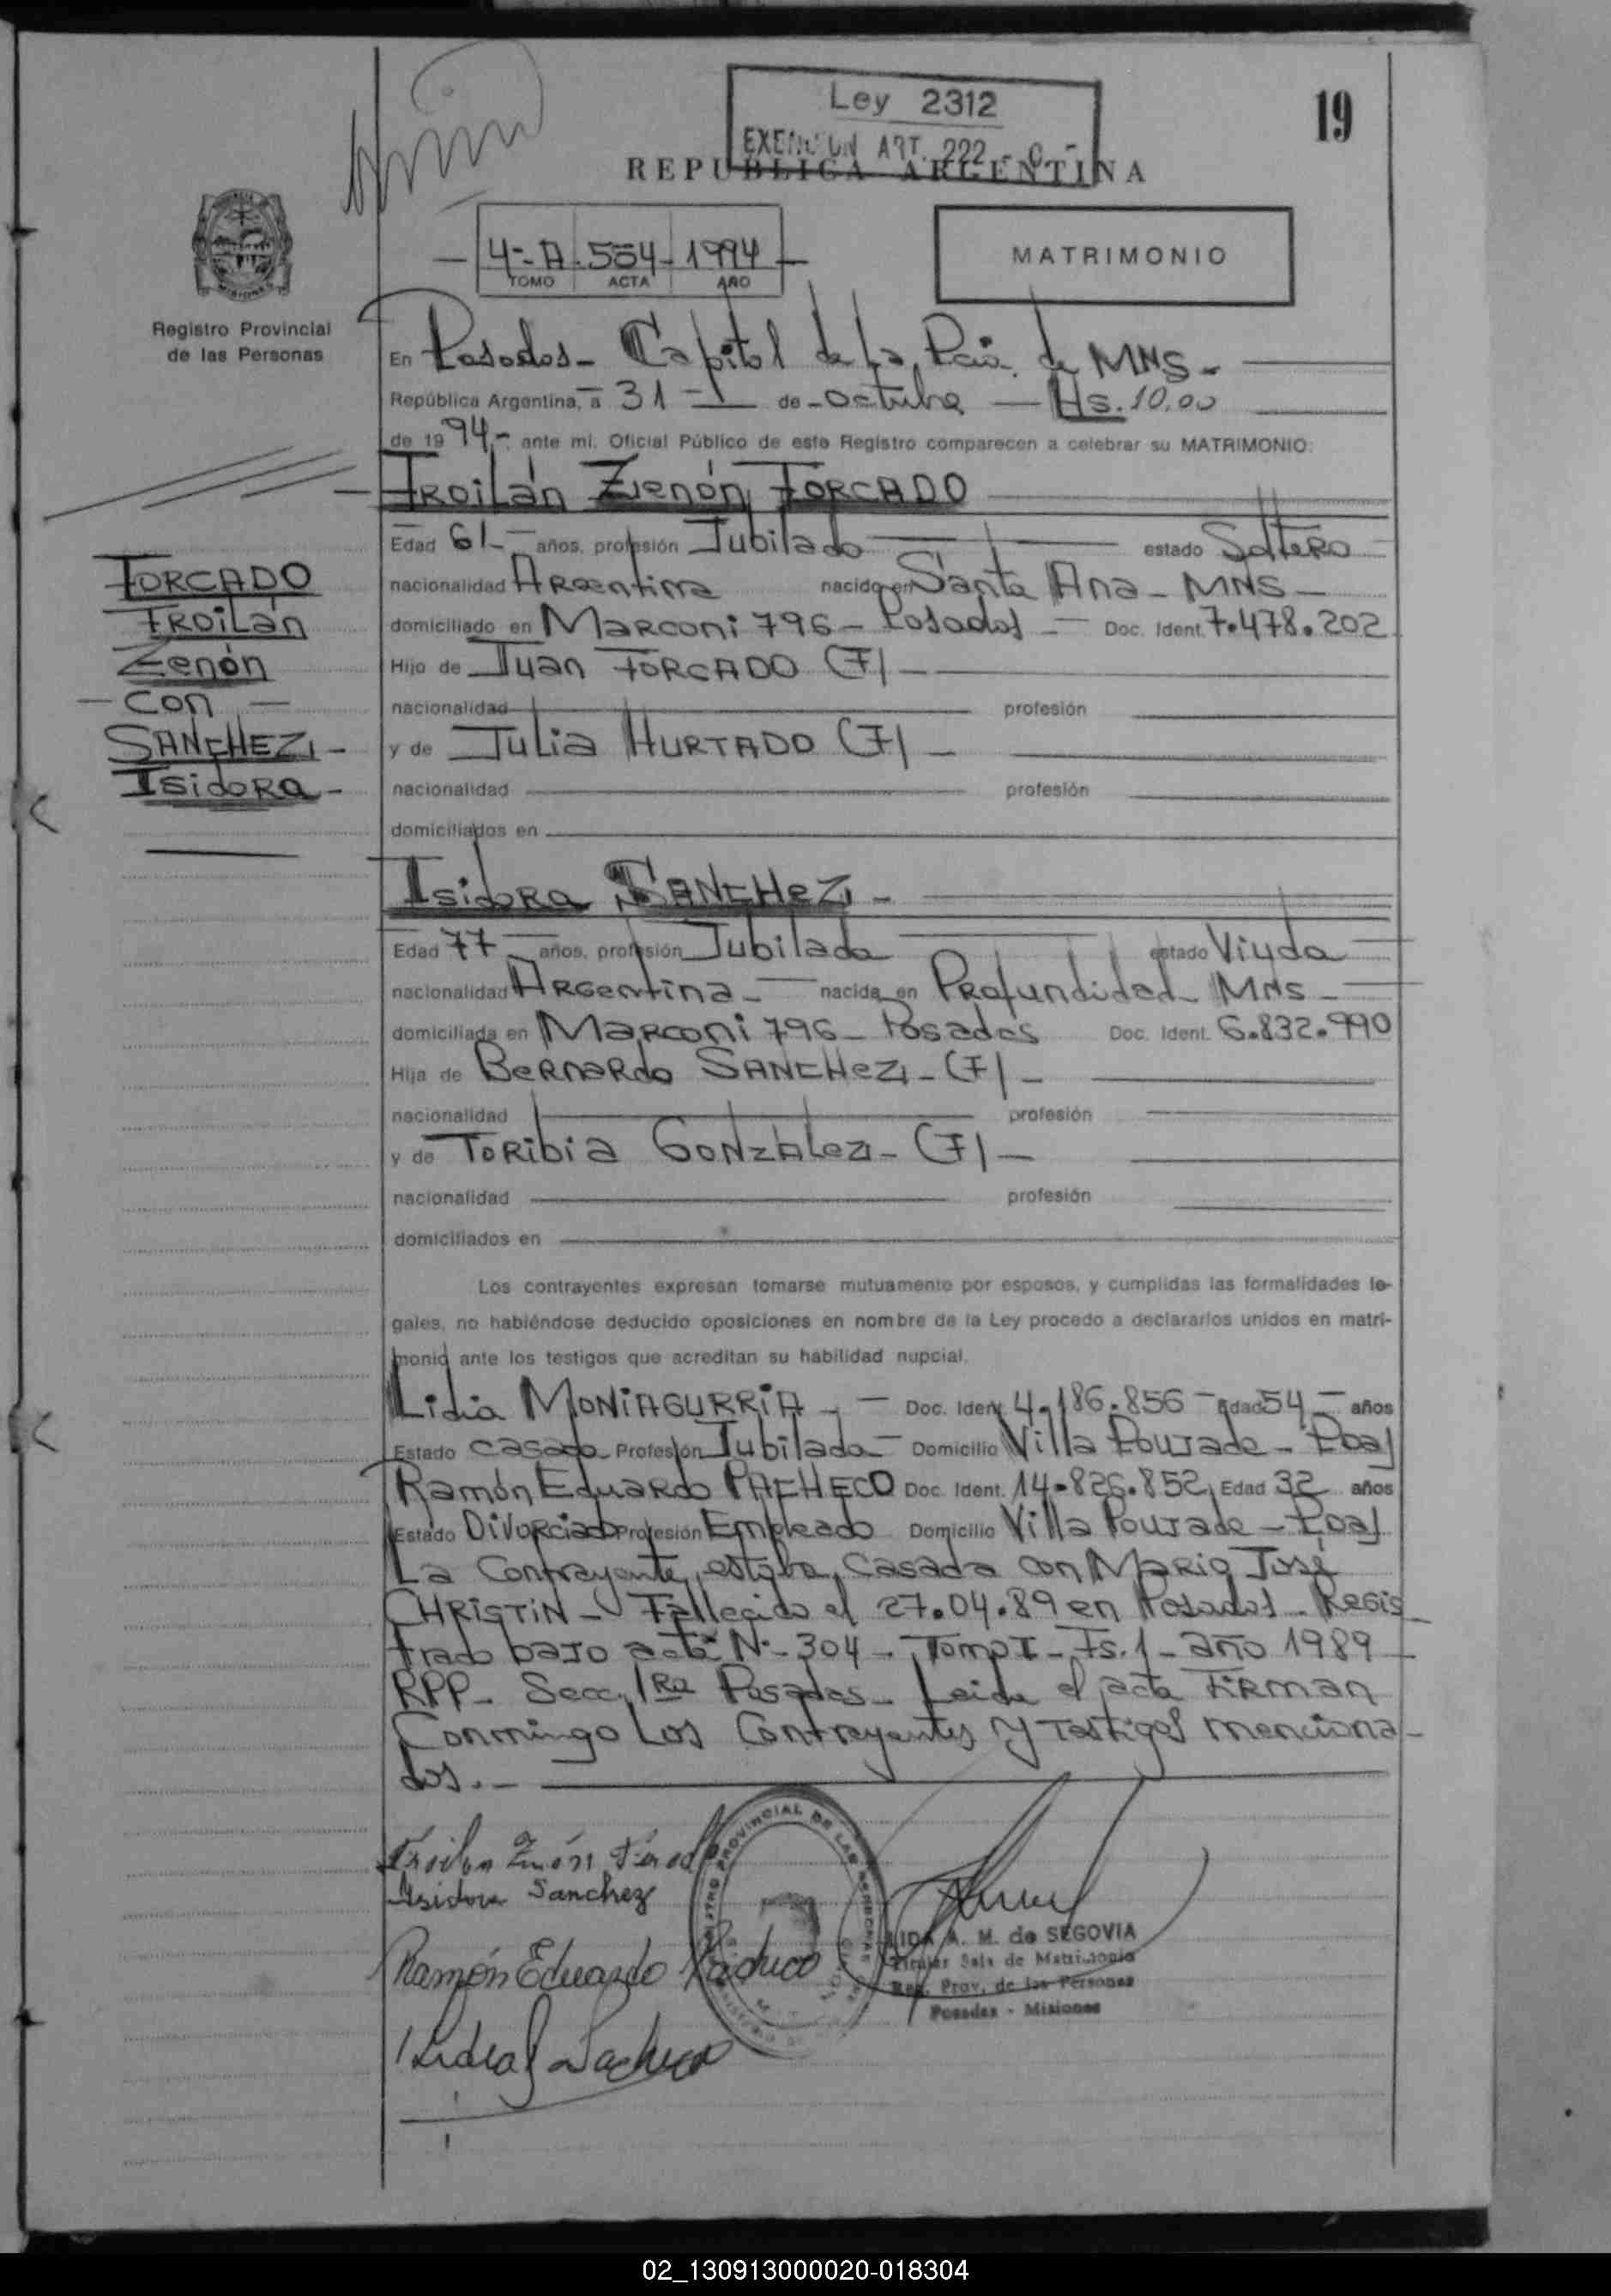 Ley 2312
EXENCION ART. 222 - C -
19
REPUBLICA ARGENTINA
4-A 554 1994
TOMO ACTA AÑO
MATRIMONIO
Registro Provincial
de las Personas
En Posadas - Capital de La Pcia. de MNS.-
República Argentina, a 31 - de - Octubre - Hs. 10,00
de 1994.- ante mi, Oficial Público de este Registro comparecen a celebrar su MATRIMONIO:
Troilán Zenón FORCADO
Edad 61 - años, profesión Jubilado estado Soltero
nacionalidad Argentina nacido en Santa Ana - MNS -
domiciliado en Marconi 796 - Posadas - Doc. Ident. 7.478.202
Hijo de Juan FORCADO (F) -
nacionalidad profesión
y de Julia HURTADO (F) -
nacionalidad profesión
domiciliados en
FORCADO
Troilán
Zenón
- con -
SANCHEZ, -
Isidora -
Isidora SANCHEZ, -
Edad 77 - años, profesión Jubilada estado Viuda
nacionalidad Argentina - nacida en Profundidad - MNS -
domiciliada en Marconi 796 - Posadas Doc. Ident. 6.832.990
Hija de Bernardo SANCHEZ - (F) -
nacionalidad profesión
y de Toribia GONZALEZ - (F) -
nacionalidad profesión
domiciliados en
Los contrayentes expresan tomarse mutuamente por esposos, y cumplidas las formalidades le-
gales, no habiéndose deducido oposiciones en nombre de la Ley procedo a declararlos unidos en matri-
monio ante los testigos que acreditan su habilidad nupcial.
Lidia MONIAGURRIA - Doc. Ident. 4.186.856 - Edad 54 - años
Estado casada Profesión Jubilada - Domicilio Villa Poujade - Pdas
Ramón Eduardo PACHECO Doc. Ident. 14.826.852, Edad 32 años
Estado Divorciado Profesión Empleado Domicilio Villa Poujade - Pdas
La Contrayente, estaba, Casada con Mario José
CHRISTIN - Fallecido el 27.04.89 en Posadas - Regis-
trado bajo acta N- 304 - Tomo I - Fs. 1 - año 1989 -
RPP - Secc. 1ra Posadas - Leida el acta Firman
Conmingo Los Contrayentes y Testigos menciona-
dos.-
Isidora Sanchez
Ramón Eduardo Pacheco
REGISTRO PROVINCIAL DE LAS PERSONAS
LIDA A. M. de SEGOVIA
Titular Sala de Matrimonio
Reg. Prov. de las Personas
Posadas - Misiones
02_130913000020-018304